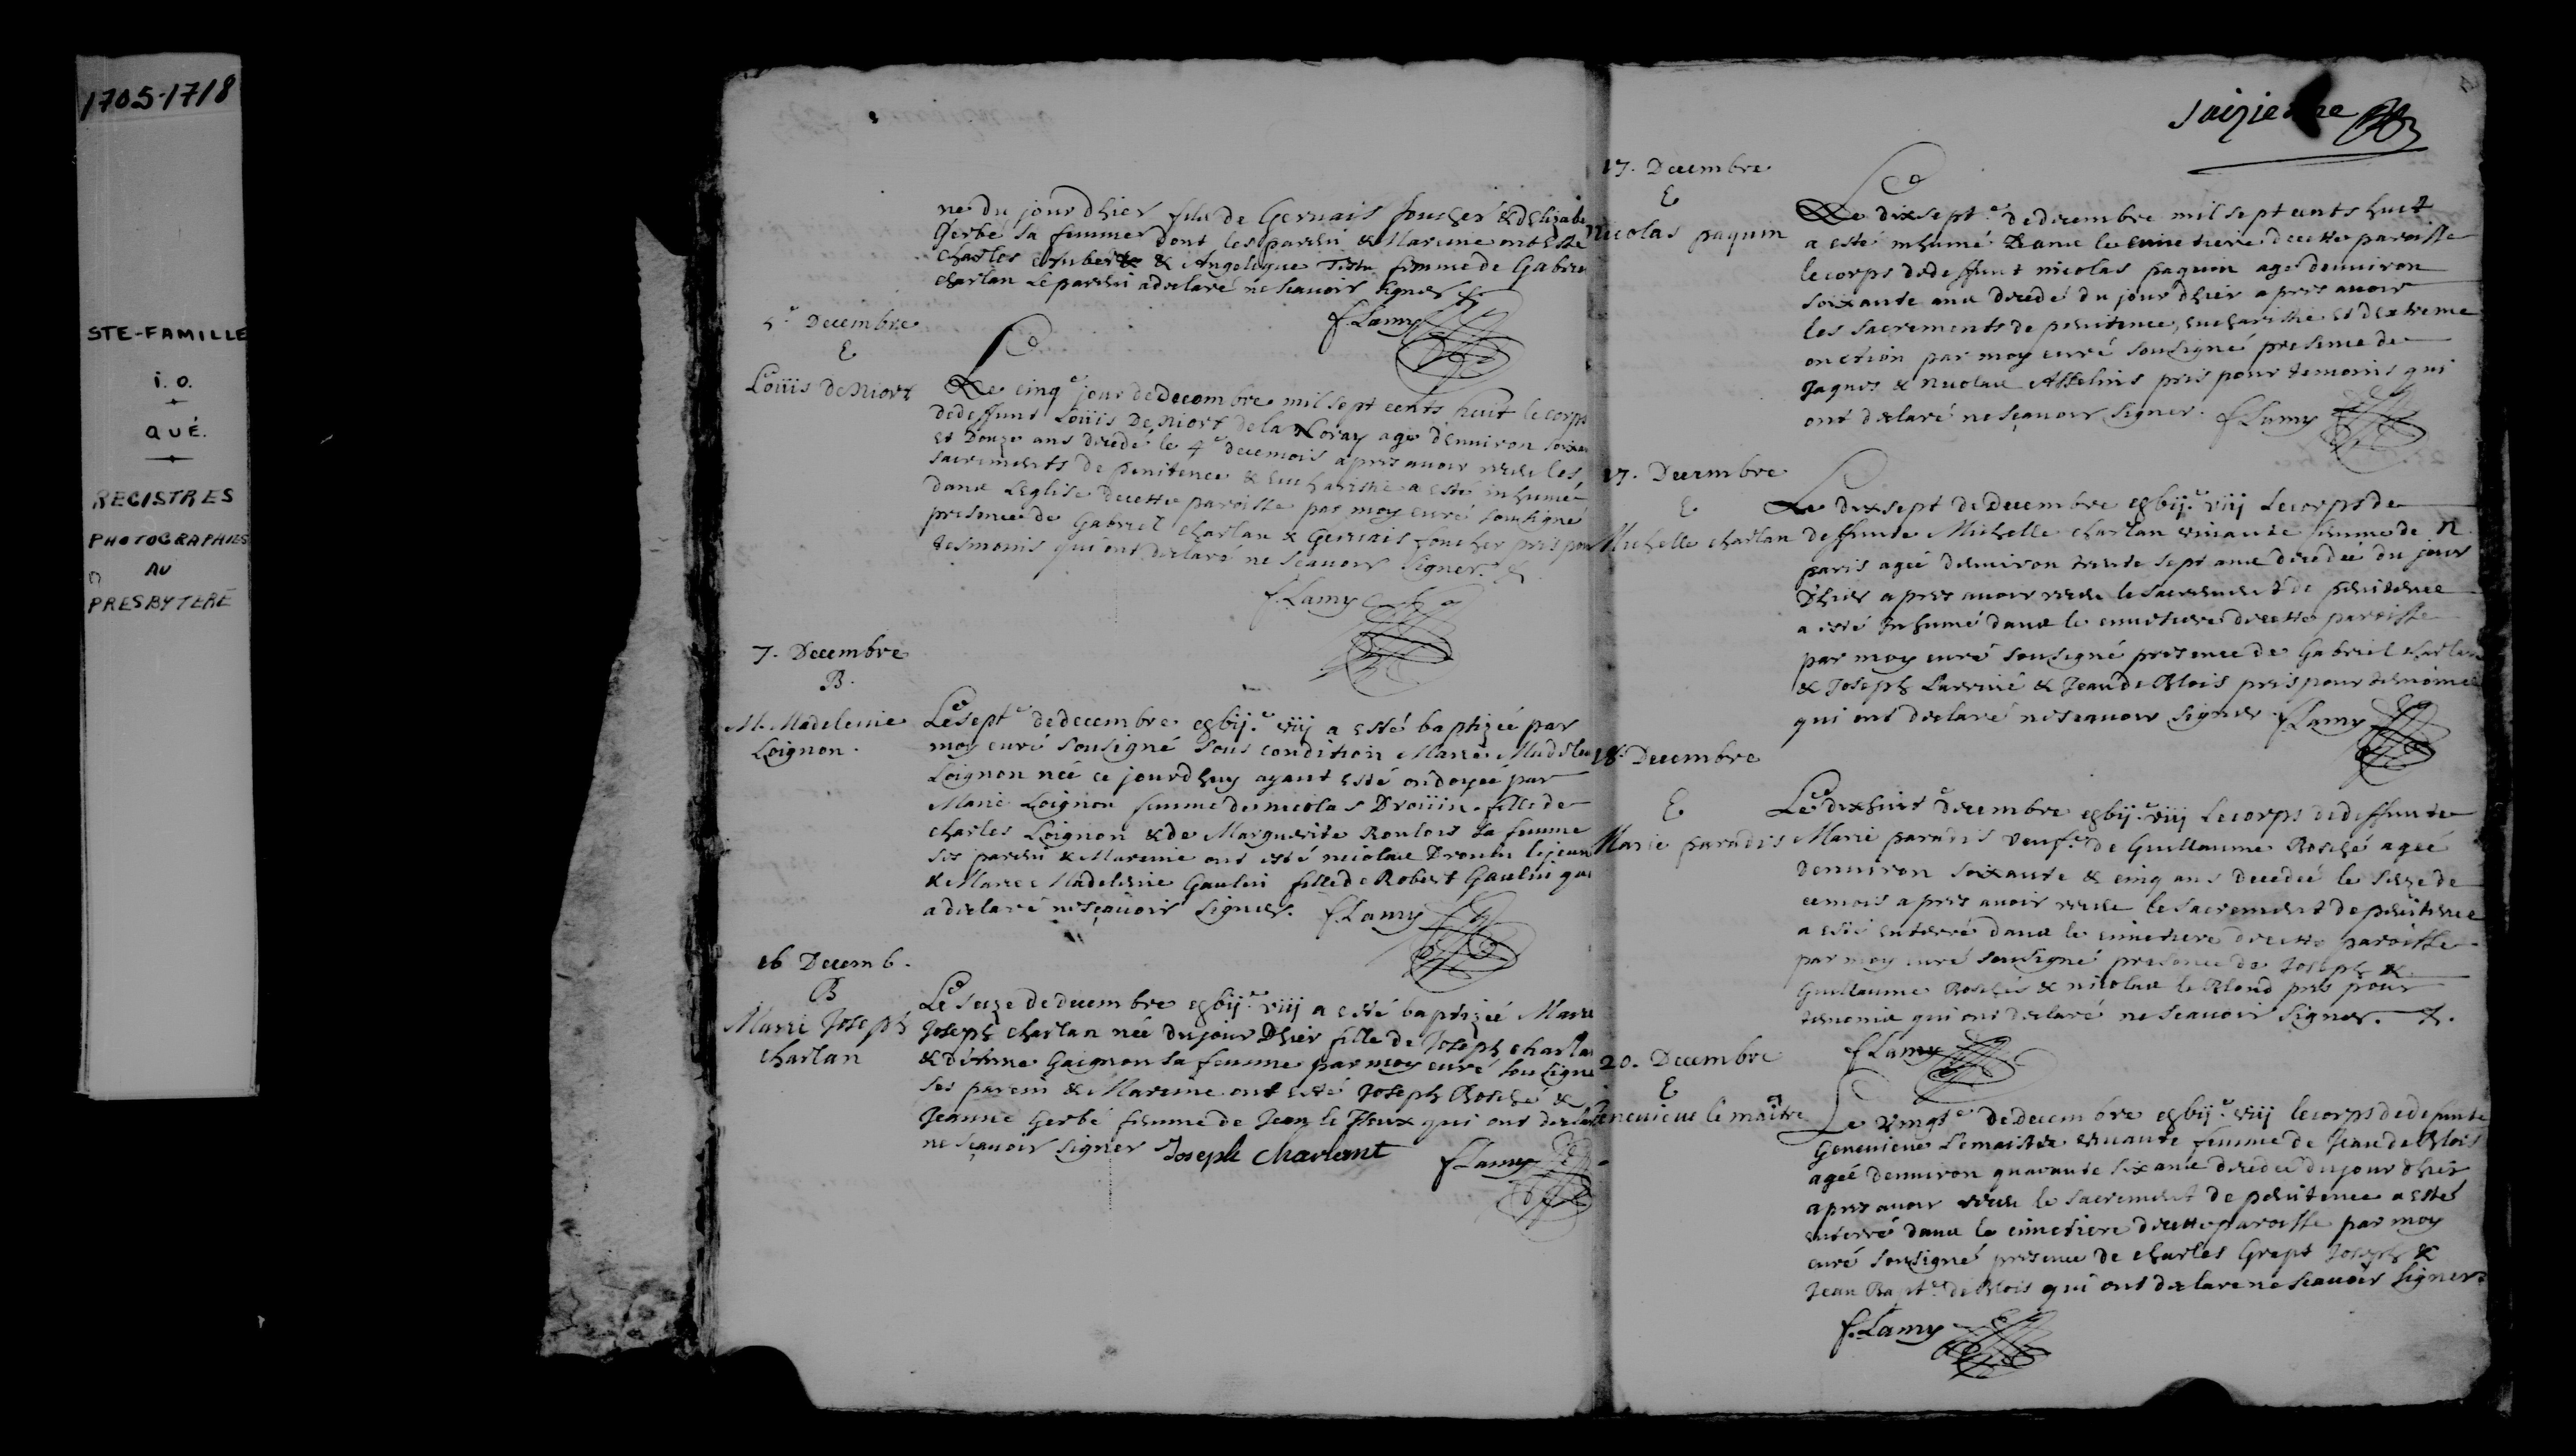 1705-1718
STE-FAMILLE
i.o.
QUÉ.
REGISTRES
PHOTOGRAPHIES
AU
PRESBYTERE
né du jour dhier fils de Gervais fouché & dElizabe
Gerbé sa femme dont les parein & Mareine ont esté
Charles & Angelique femme de Gabriel
charlan Le parein a declaré ne scavoir signer
f. Lamy
5e Decembre
E
Loüis de Niort
Le cinqe jour de Decembre mil sept cents huit le corps
de deffunt Loüis De Niort de la Noray agé denviron soixan
et Douze ans decedé le 4e de ce mois apres avoir receu les
sacrements de penitence & Eucharistie a esté inhumé
dans Leglise de cette paroisse par moy curé sousigné
presence de Gabriel charlan & Gervais foucher pris pour
tesmoins qui ont declaré ne scavoir signer. &
f. Lamy
7. Decembre
B.
M. Madeleine
Loignon.
Le septe de decembre gbije viij a esté baptizée par
moy curé sousigné sous condition Marie Madelei
Loignon née ce jourdhuy ayant esté ondoyée par
Marie Loignon femme de nicolas Droüin. fille de
charles Loignon & de Marguerite Roulois sa femme
ses parein & Mareine ont esté nicolas Drouin le jeun
& Marie Madeleine Gaulin fille de Robert Gaulin qui
a declaré ne sçavoir signer. f. Lamy
16 Decemb.
B
Marie Joseph
charlan
Le seize de decembre gbije viij a esté baptizée Marie
Joseph charlan née du jour Dhier fille de Joseph charla
& dAnne Gaignon sa femme par moy curé sousigné
ses parein & Mareine ont esté Joseph Rosché &
Jeanne Gerbé femme de Jean le heux qui ont declaré
ne sçavoir signer Joseph charlant f. Lamy
saizieme
17. Decembre
E
Nicolas paquin
Le dixsepte de decembre mil sept cents huit
a esté inhumé Dans le cimetiere de cette paroisse
le corps de deffunt nicolas paquin agé denviron
soixante ans decedé du jour dhier apres avoir
les sacrements de penitence, eucharistie et dextreme
onction par moy curé sousigné presence de
Jaques & nicolas Asselins pris pour temoins qui
ont declaré ne sçavoir signer. f. Lamy
17. Decembre
E
Michelle charlan
Le dixsept de Decembre gbije viij Le corps de
deffunte Michelle charlan vivante femme de N.
paris agée denviron trente sept ans decedée du jour
Dhier apres avoir receu le sacrement de penitence
a esté Inhumé dans le cimetiere de cette paroisse
par moy curé sousigné presence de Gabriel charlan
& Joseph Larrivé & Jean de Blois pris pour temoins
qui ont declaré ne scavoir signer f. Lamy
18. Decembre
E
Marie paradis
Le dixhuite decembre gbije viij Le corps de deffunte
Marie paradis veufe de Guillaume Rosché agée
denviron soixante & cinq ans decedée le seize de
ce mois apres avoir receu le sacrement de penitence
a esté enterré dans le cimetiere de cette paroisse
par moy curé sousigné presence de Joseph &
Guillaume Rosché & nicolas le Blond pris pour
temoins qui ont declaré ne scavoir signer. &.
f. Lamy
20. Decembre
E
Genevieve le maître
Le vingte de Decembre gbije viij le corps de defunte
Genevieve Lemaistre vivante femme de Jean de Blois
agée denviron quarante six ans decedée du jour dhier
apres avoir receu le sacrement de penitence a esté
enterré dans le cimetiere de cette paroisse par moy
curé sousigné presence de charles Joseph &
Jean Bapte de Blois qui ont declaré ne scavoir signer
f. Lamy